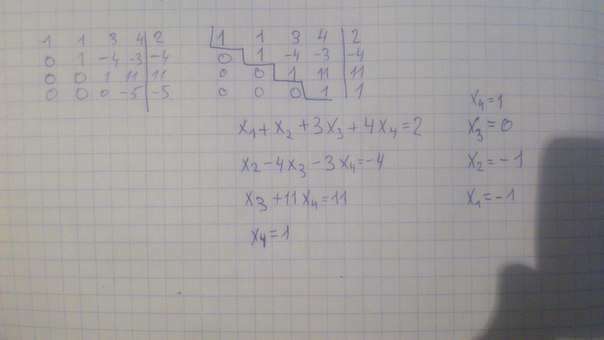 1 1 3 4 | 2
0 1 -4 -3 | -4
0 0 1 11 | 11
0 0 0 -5 | -5
1 1 3 4 | 2
0 1 -4 -3 | -4
0 0 1 11 | 11
0 0 0 1 | 1
x₁+x₂+3x₃+4x₄=2
x₂-4x₃-3x₄=-4
x₃+11x₄=11
x₄=1
x₄=1
x₃=0
x₂=-1
x₁=-1